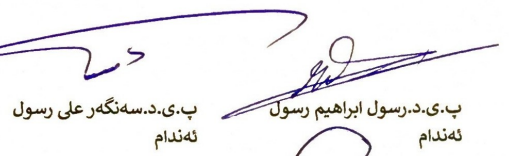 پ.ی.د.رسول ابراهیم رسول
ئەندام
پ.ی.د.سەنگەر علی رسول
ئەندام